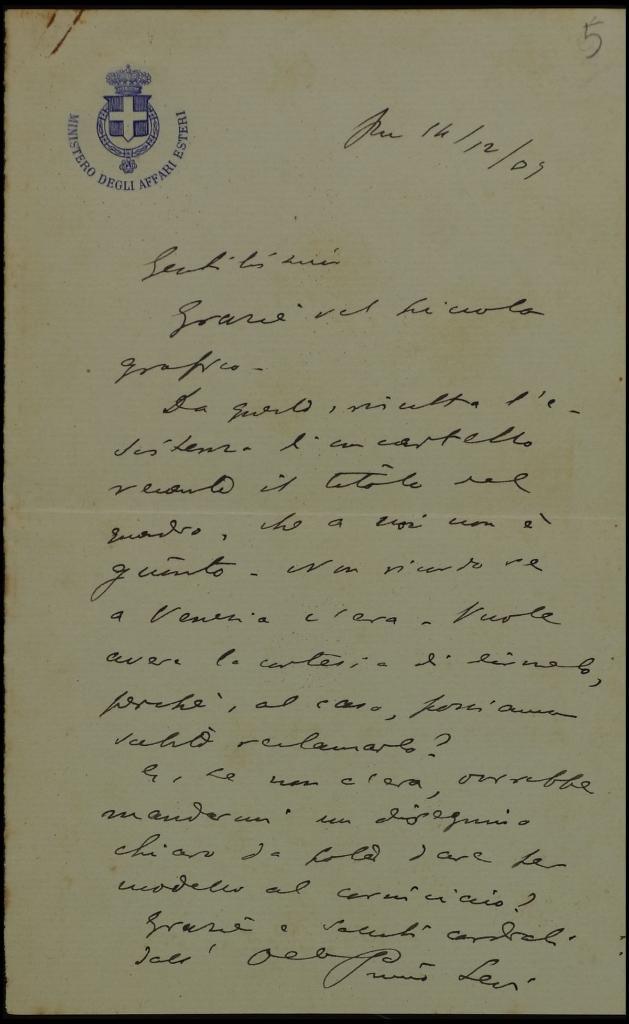 5
MINISTERO DEGLI AFFARI ESTERI
14/12/09
Gentilissimi
Grazie del piccolo
grafico -
Da questo, risulta l'e-
sistenza di un cartello
recante il titolo del
quadro, che a noi non è
giunto - Non ricordo se
a Venezia c'era - Vuole
avere la cortesia di dirmelo,
perché, al caso, possiamo
subito reclamarlo?
E, se non c'era, vorrebbe
mandarmi un disegnino
chiaro da poter dare per
modello al corniciaio?
Grazie e saluti cordiali
dal Primo Levi